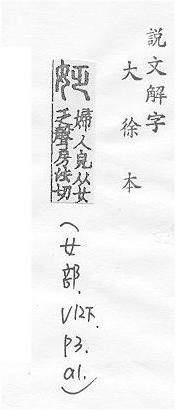 説文解字
大徐本
姂
婦人皃从女
乏聲房法切
(女部. V12下. P3. a1.)